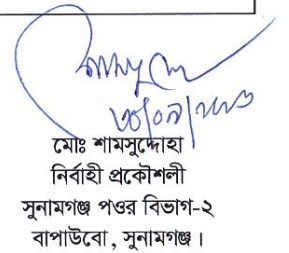 মোঃ শামসুদ্দোহা
নির্বাহী প্রকৌশলী
সুনামগঞ্জ পওর বিভাগ-২
বাপাউবো, সুনামগঞ্জ।